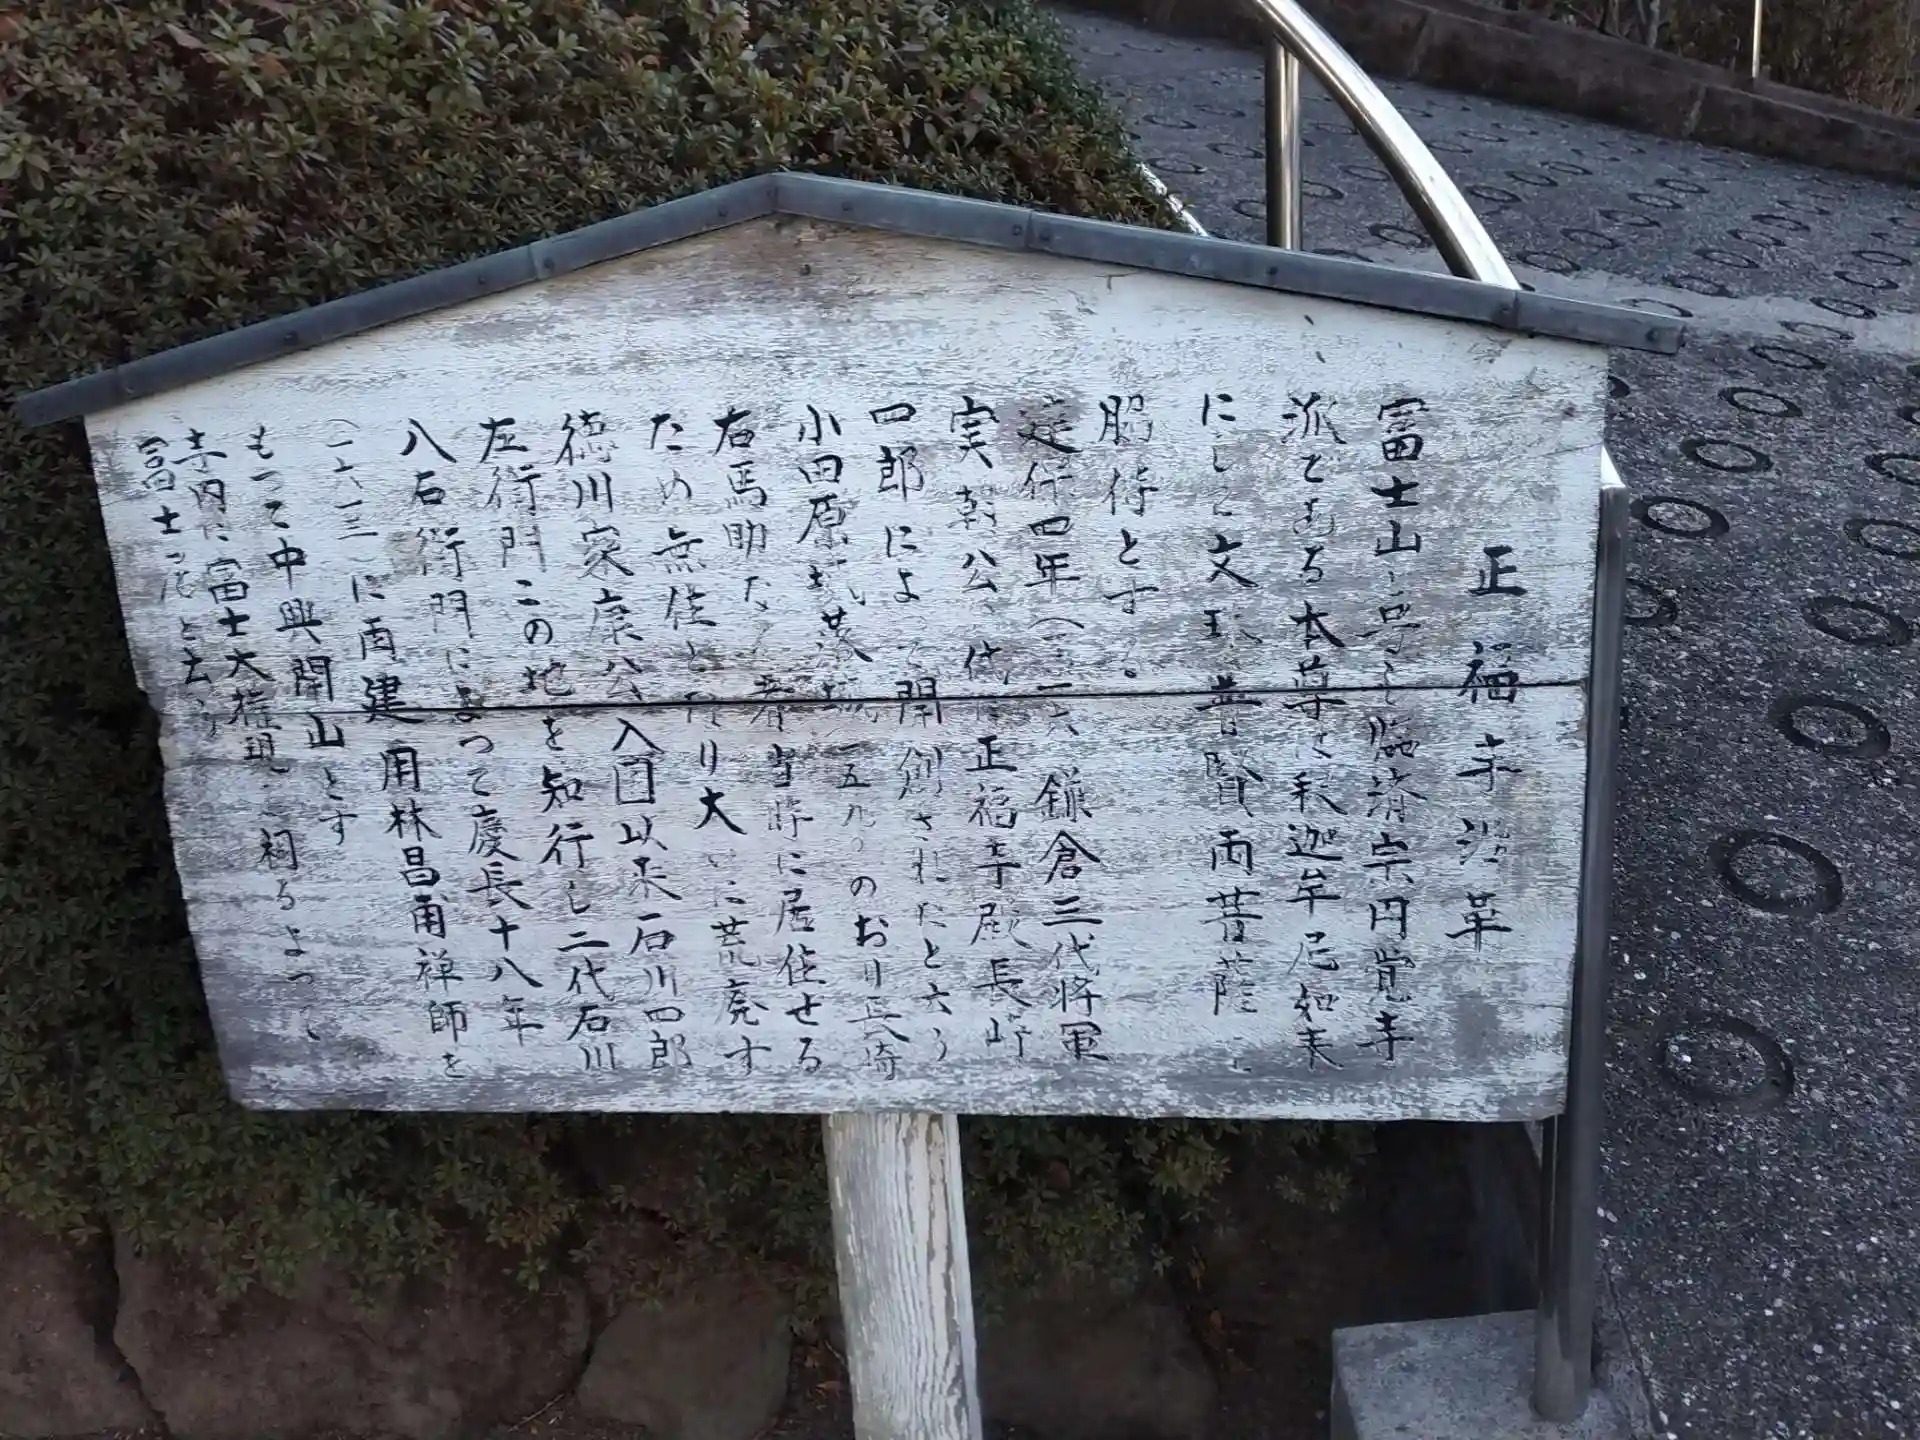 正福寺沿革
富士山と号し臨済宗円覚寺
派である本尊は釈迦牟尼如来
にして文殊普賢両菩薩を
脇侍とする
建保四年(一二一六)鎌倉三代将軍
実朝公の代に正福寺殿長崎
四郎によって開創されたと云う
小田原城落城一五九〇のおり長崎
右馬助なる者当時に居住せる
ため無住となり大いに荒廃す
徳川家康公入国以来石川四郎
左衛門この地を知行し二代石川
八右衛門によって慶長十八年
(一六一三)に再建用林昌甫禅師を
もって中興開山とす
寺内に富士大権現を祠るよって
富士ノ尼と云う